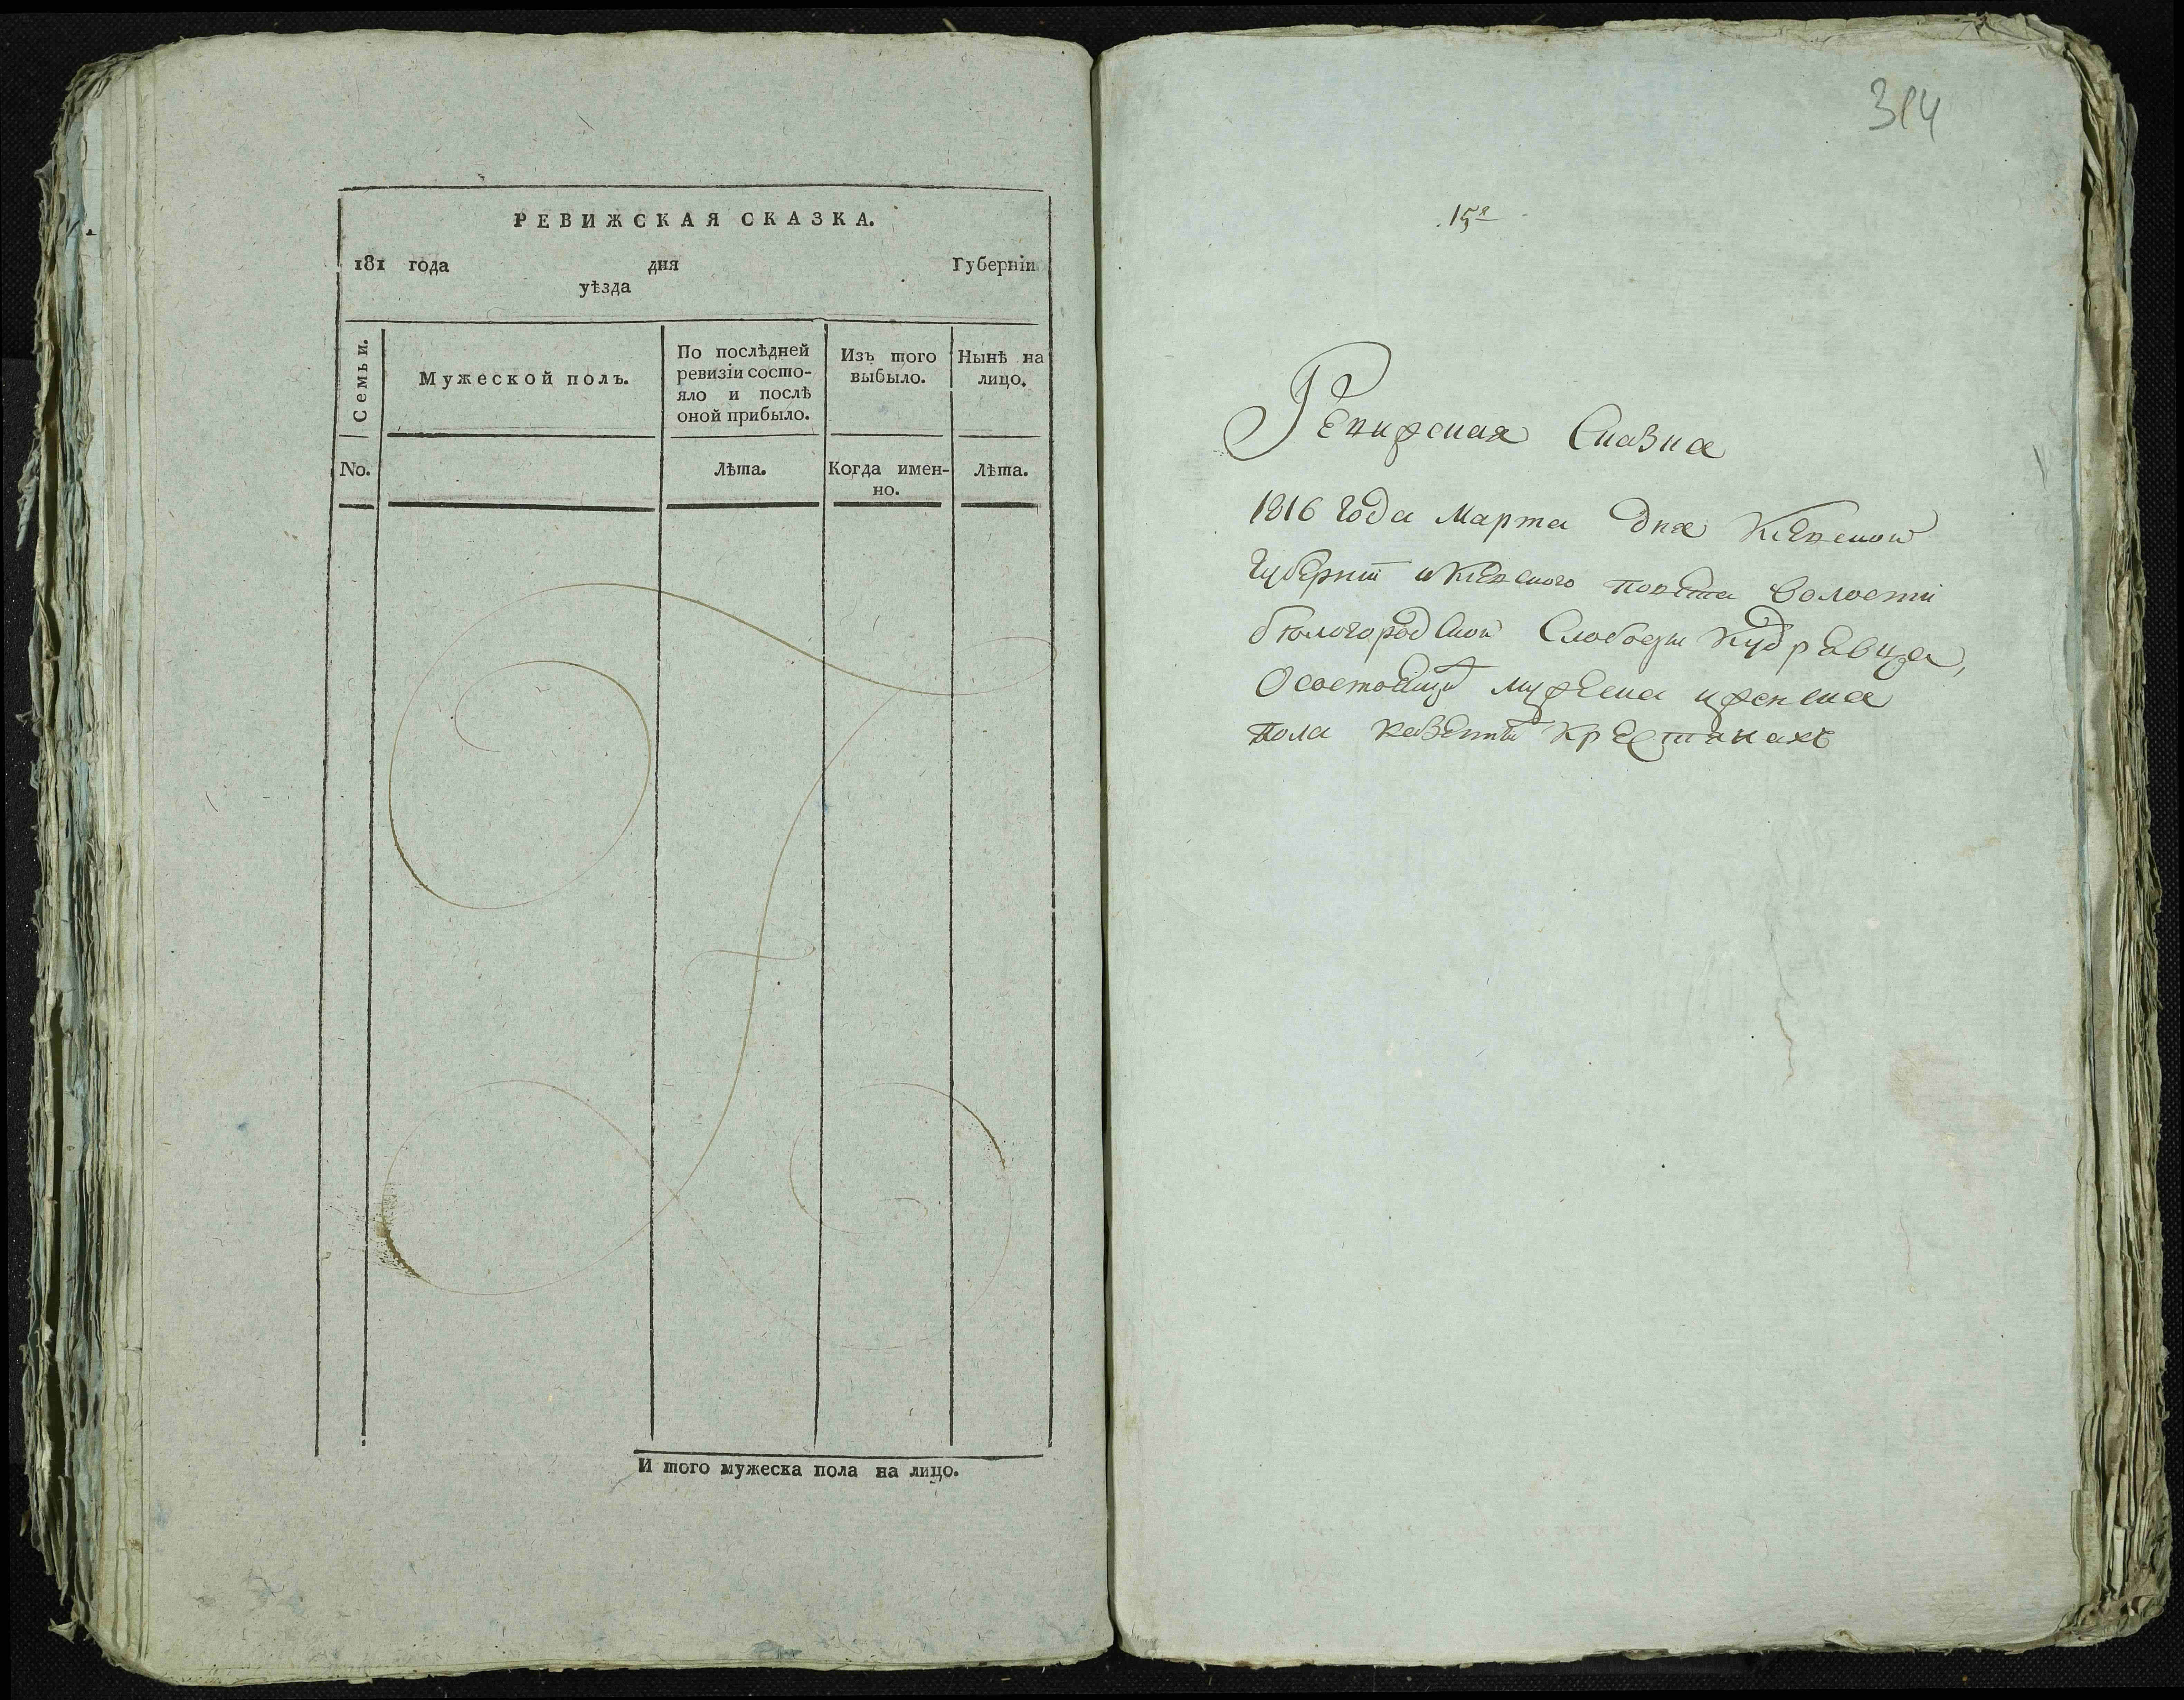 РЕВИЖСКАЯ СКАЗКА.
181 года дня Губерніи
уѣзда
Семьи.
Мужеской полъ.
По послѣдней
ревизіи состо-
яло и послѣ
оной прибыло.
Изъ того
выбыло.
Нынѣ на
лицо.
No.
Лѣта.
Когда имен-
но.
Лѣта.
И того мужеска пола на лицо.
314
15я
Ревижская Сказка
1816 года Марта дня Кіевской
губерніи и Кіевского повета волости
бѣлогородской Слободы Кудрявца,
О состоящих мужеска и женска
пола казенных крестянахъ